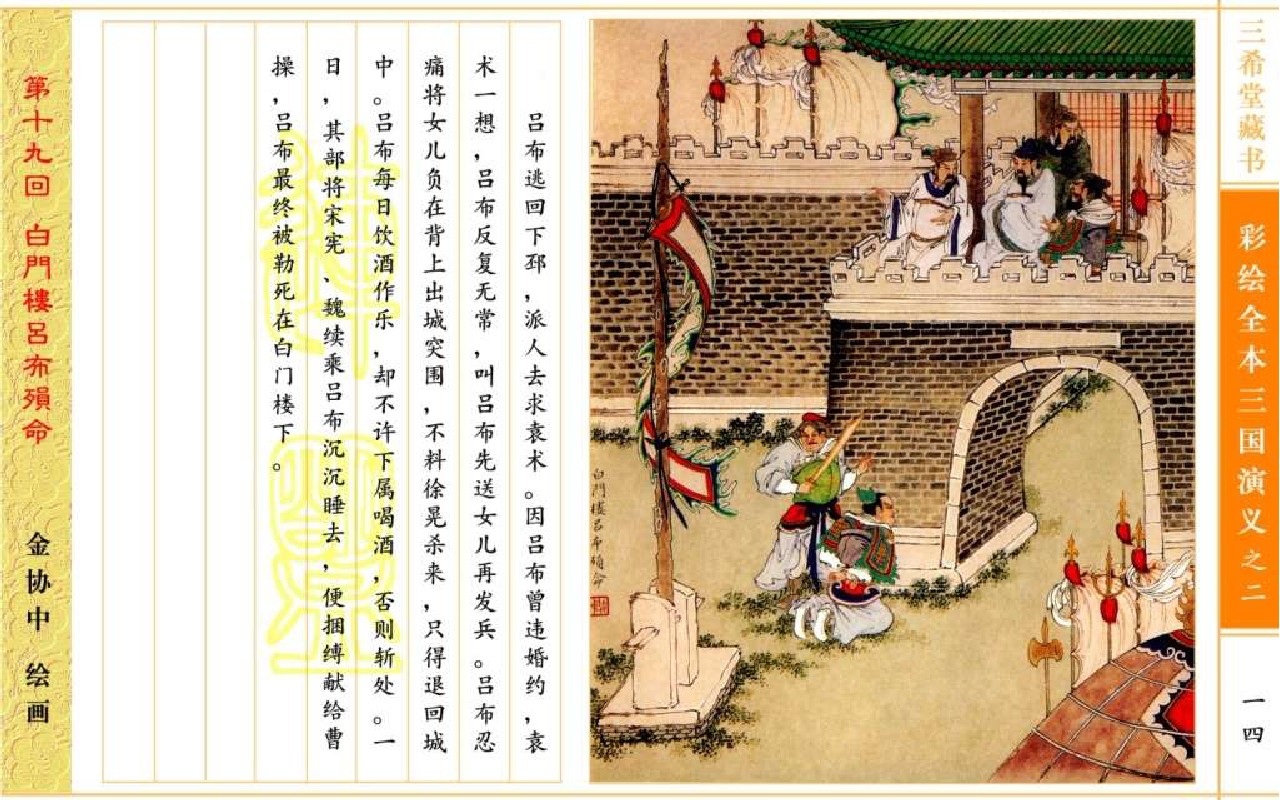 三希堂藏书
彩绘全本三国演义之二
一四
白門樓呂布殞命
吕布逃回下邳，派人去求袁术。因吕布曾违婚约，袁
术一想，吕布反复无常，叫吕布先送女儿再发兵。吕布忍
痛将女儿负在背上出城突围，不料徐晃杀来，只得退回城
中。吕布每日饮酒作乐，却不许下属喝酒，否则斩处。一
日，其部将宋宪、魏续乘吕布沉沉睡去，便捆缚献给曹
操，吕布最终被勒死在白门楼下。
第十九回 白門樓呂布殞命
金协中 绘画